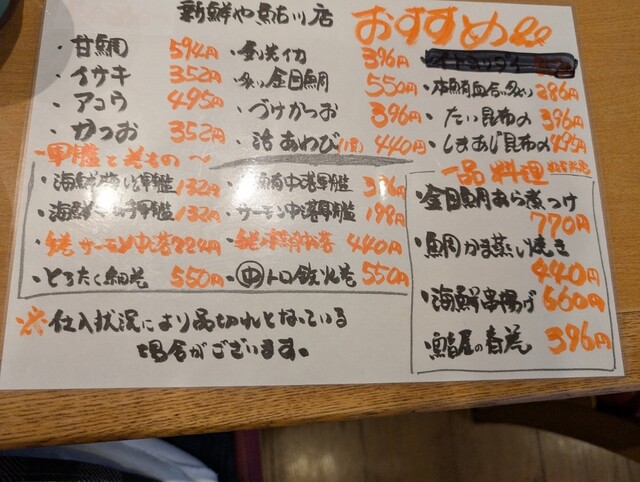 新鮮や鮎川店
おすすめ
・甘鯛 594円
・イサキ 352円
・アコウ 495円
・かつお 352円
イカ 396円
・炙り金目鯛 550円
・づけかつお 396円
・活あわび(1貫) 440円
・本鮪血合い炙り 286円
・たい昆布〆 396円
・しまあじ昆布〆 495円
軍艦と巻もの〜
軍艦 132円
軍艦 132円
サーモン中落 224円
・とろたく細巻 550円
鮪中落軍艦 376円
・サーモン中落軍艦 198円
440円
・中トロ鉄火巻 550円
一品料理
・金目鯛あら煮つけ 770円
・鯛かま蒸し焼き 440円
・海鮮串揚げ 660円
・鮨屋の春巻 396円
※仕入状況により品切れとなっている
場合がございます。